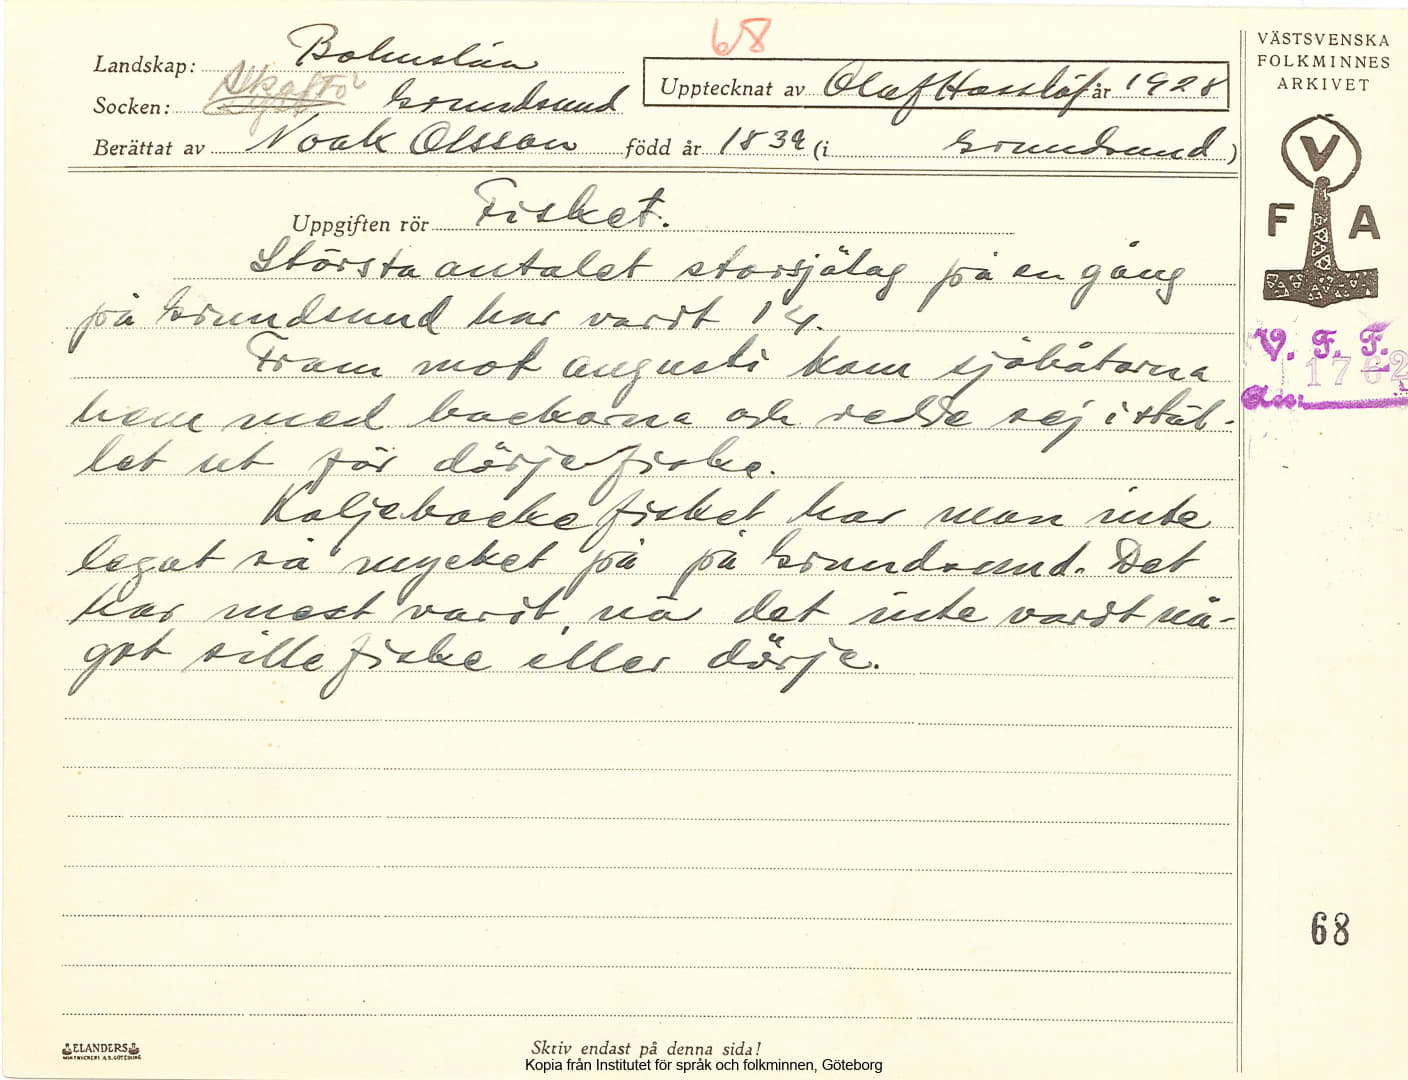 68
Landskap: Bohuslän
Skaftö
Socken: Grundsund
Upptecknat av Olof Hasslöf år 1928
Berättat av Noak Olsson född år 1839 (i Grundsund)
Uppgiften rör Fisket.
Största antalet storsjölag på en gång
på Grundsund har varit 14.
Fram mot augusti kom sjöbåtarna
hem med backorna och redde sej i stäl-
let ut för dörjefiske.
Koljebackefisket har man inte
legat så mycket på på Grundsund. Det
har mest varit, när det inte vardt nå-
got sillefiske eller dörje.
VÄSTSVENSKA
FOLKMINNES
ARKIVET
V
F A
V. F. F.
1762
68
ELANDERS
Skriv endast på denna sida!
Kopia från Institutet för språk och folkminnen, Göteborg